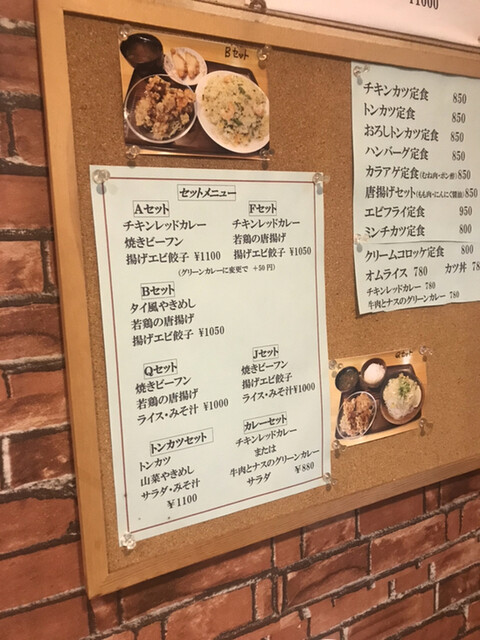 ¥1000
Bセット
セットメニュー
Aセット
チキンレッドカレー
焼きビーフン
揚げエビ餃子 ¥1100
Fセット
チキンレッドカレー
若鶏の唐揚げ
揚げエビ餃子 ¥1050
(グリーンカレーに変更で +50円)
Bセット
タイ風やきめし
若鶏の唐揚げ
揚げエビ餃子 ¥1050
Qセット
焼きビーフン
若鶏の唐揚げ
ライス・みそ汁 ¥1000
Jセット
焼きビーフン
揚げエビ餃子
ライス・みそ汁 ¥1000
トンカツセット
トンカツ
山菜やきめし
サラダ・みそ汁
¥1100
カレーセット
チキンレッドカレー
または
牛肉とナスのグリーンカレー
サラダ ¥880
チキンカツ定食 850
トンカツ定食 850
おろしトンカツ定食 850
ハンバーグ定食 850
カラアゲ定食(むね肉・ポン酢) 850
唐揚げセット(もも肉・にんにく醤油) 850
エビフライ定食 950
ミンチカツ定食 800
クリームコロッケ定食 800
オムライス 780 カツ丼 780
チキンレッドカレー 780
牛肉とナスのグリーンカレー 780
Qセット